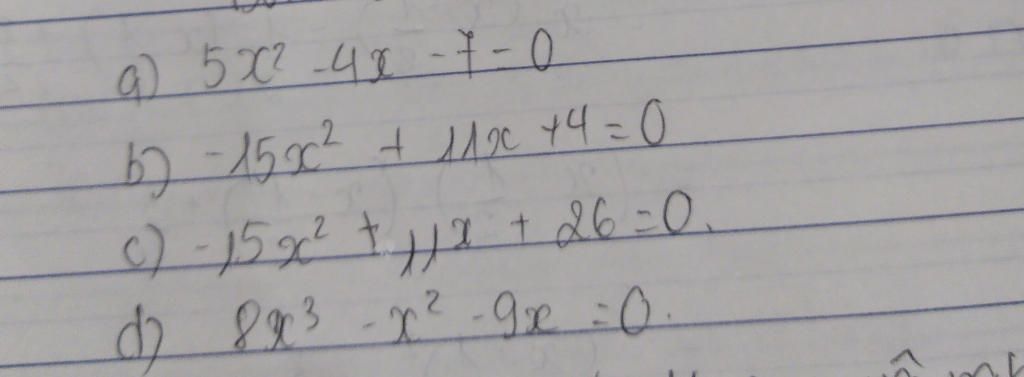 a) 5x² - 4x - 7 - 0
b) -15x² + 11x + 4 = 0
c) -15x² + 11x + 26 = 0.
d) 8x³ - x² - 9x = 0.